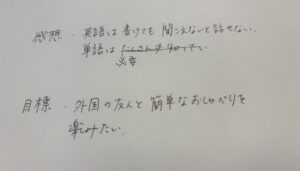 感想・英語は書けても聞こえないと話せない。
単語は たくさん 知ってい
必要
目標・外国の友人と簡単なおしゃべりを
楽しみたい。